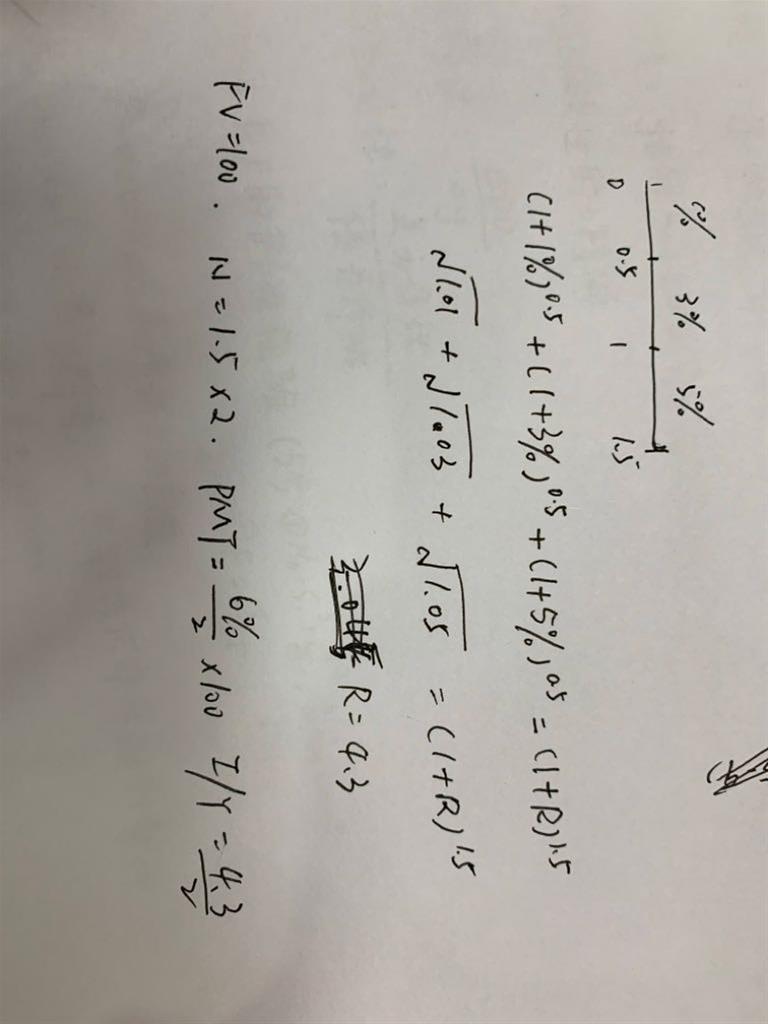 1% 3% 5%
0 0.5 1 1.5
(1+1%)^0.5 + (1+3%)^0.5 + (1+5%)^0.5 = (1+R)^1.5
√1.01 + √1.03 + √1.05 = (1+R)^1.5
R = 4.3
FV=100. N=1.5×2. PMT = 6%/2 ×100 I/Y = 4.3/2